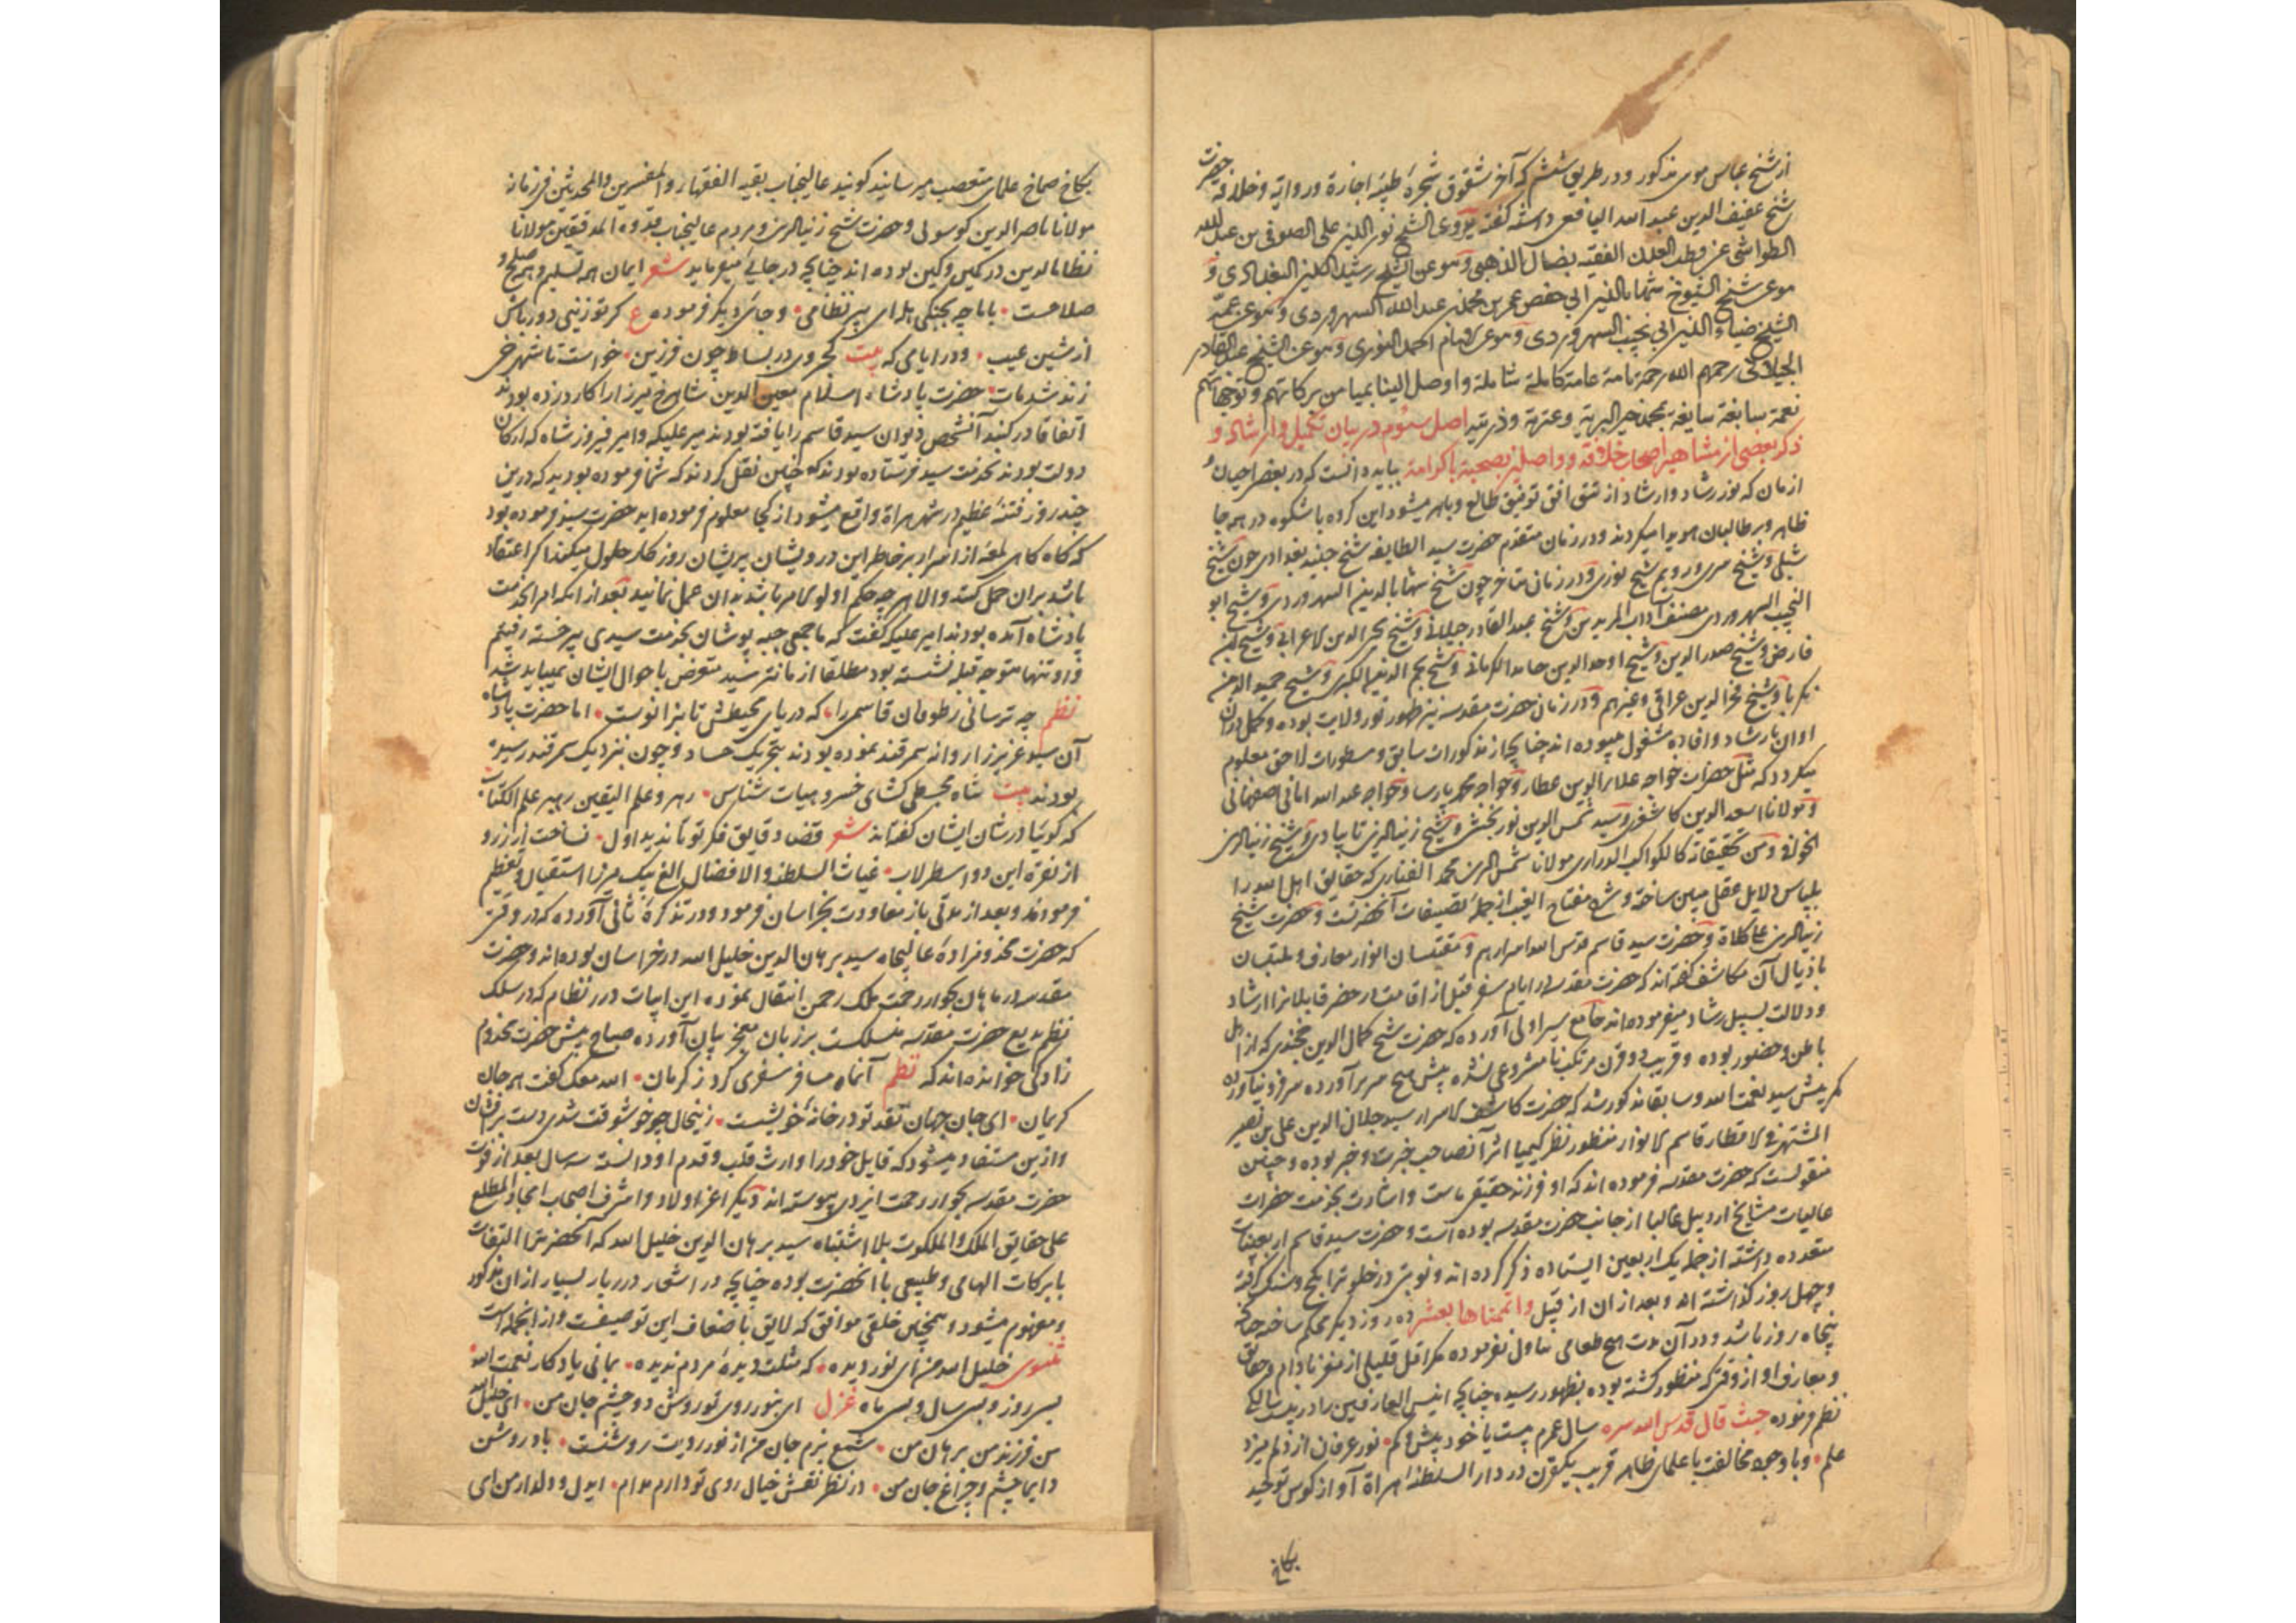 از شیخ عباس موسی مذکور و در طریق ششم که آخر شقوق شجره طیبه اجازة و روایة و خلافة حضرت
شیخ عفیف الدین عبد الله الیافعی داشته گفته یروی عن الشیخ نور الدین علی الصوفی بن عبد الله
الطواشی عن قطب العدن الفقیه بضال الذهیبی و هو عن الشیخ رشید الدین البغدادی و
هو عن شیخ الشیوخ شهاب الدین ابی حفص عمر بن محمد بن عبد الله السهروردی و هو عن عمه
الشیخ ضیاء الدین ابی نجیب السهروردی و هو عن الامام احمد الغوری و هو عن الشیخ عبد القادر
الجیلانی رحمهم الله رحمة تامة عامة کاملة شاملة و اوصل الینا بمیامن برکاتهم و توجهاتهم
نعمة سابغة سابغة بمحمد خیر البریة و عترته و ذریته اصل سوم در بیان تکمیل و ارشاد و
ذکر بعضی از مشاهیر اصحاب خلافة و واصلین بصحبة باکرامة بباید دانست که در بعضی احیان و
ازمان که نور رشاد و ارشاد از شق افق توفیق طالع و باهر میشود این کروه باشکوه در هر جا
ظاهر و بر طالبان هویدا میکردند و در زمان متقدم حضرت سید الطایفه شیخ جنید بغدادی چون شیخ
شبلی و شیخ سری و رویم شیخ نوری و در زمان متاخر چون شیخ شهاب الدین السهروردی و شیخ ابو
النجیب السهروردی مصنف آداب المریدین و شیخ عبد القادر جیلانی و شیخ محی الدین الاعرابی و شیخ ابن
فارض و شیخ صدر الدین و شیخ اوحد الدین حامد الکرمانی و شیخ نجم الدین الکبری و شیخ حمید الدین
زکریا و شیخ فخر الدین عراقی و غیرهم و در زمان حضرت مقدسه نیز ظهور نور ولایت بوده و کمل در آن
اوان بارشاد و افاده مشغول میبوده اند چنانچه از مذکورات سابق و مسطورات لاحق معلوم
میکردد که مثل حضرات خواجه علاء الدین عطار و خواجه محمد پارسا و خواجه عبد الله امانی اصفهانی
و مولانا سعد الدین کاشغری و سید شمس الدین نوربخش و شیخ زین الدین تایبادی و شیخ زین الدین
الخوافی و من تحقیقاته کالکواکب الدراری مولانا شمس الدین محمد الفناری که حقایق اهل الله را
بلباس دلایل عقلی مبین ساخته و شرح مفتاح الغیب از جمله تصنیفات آنحضرتست و حضرت شیخ
زین الدین علی کلاة و حضرت سید قاسم قدس الله اسرارهم و مقتبسان انوار معارف و ملتبسان
باذیال آن مکاشف کفته اند که حضرت مقدسه در ایام سفر قبل از اقامت در حضر قابلانرا ارشاد
و دلالت بسبیل رشاد میفرموده اند جامع سیر اولی آورده که حضرت شیخ کمال الدین خجندی که از اهل
باطن و حضور بوده و قریب دو قرن مرتکب نامشروعی نشده پیش هیچ سربرآورده سر فرو نیاورد
مگر پیش سید نعمت الله و سابقا مذکور شد که حضرت کاشف الاسرار سید جلال الدین علی بن نصیر
المشتهر فی الاقطار قاسم الانوار منظور نظر کیمیا اثر آنصاحب خبرت و خبر بوده و چنین
منقولست که حضرت مقدسه فرموده اند که او فرزند حقیقی ماست و اشارت بخدمت حضرات
عالیات مشایخ اردبیل غالبا از جانب حضرت مقدسه بوده است و حضرت سید قاسم اربعینات
متعدده داشته از جمله یک اربعین ایستاده ذکر کرده اند و نوبتی در خلوتی
و چهل روز کذاشته اند و بعد از ان از قبیل و اتممناها بعشر ده روز دیکر محکم ساخته چنانچه
پنجاه روز باشد و در آن مدت هیچ طعامی تناول نفرموده مکر اقل قلیلی از مغز بادام و حقایق
و معارف او از وقتی که منظور کشته بوده بظهور رسیده چنانچه انیس العارفین را در بیست سالکی
نظم فرموده حیث قال قدس الله سره سال عمرم بیست یا خود بیش و کم نور عرفان از دلم میزد
علم و باوجود مخالفت با علمای ظاهر قریب یکقرن در دار السلطنه هراة آواز کوس توحید
بکاخ
بکاخ صماخ علمای متعصب میرسانید کویند عالیجناب بقیة الفقهاء و المفسرین و المحدثین فی زمانه
مولانا ناصر الدین کوسولی و حضرت شیخ زین الدین و مردم عالیجناب قدوة المدققین مولانا
نظام الدین در کمین و کین بوده اند چنانچه در جائی میفرماید شعر ایمان همه تسلیم و همه صلح و
صلاحست بابا چه بجنکی هله ای پیر نظامی و جای دیکر فرموده ع کر تو زینی دور باش
از شین عیب و در ایامی که بیت کجروی در بساط چون فرزین خواست تا شهرخی
زند شد مات حضرت پادشاه اسلام معین الدین شاهرخ میرزا را کارد زده بودند
اتفاقا در کنبد آنشخص دیوان سید قاسم را یافته بودند میر علیکه و امیر فیروز شاه که ارکان
دولت بودند بخدمت سید فرستاده بودند که چنین نقل کردند که شما فرموده بودید که درین
چند روز فتنه عظیم در شهر هراة واقع میشود از کجا معلوم فرموده اید حضرت سید فرموده بود
که کاه کاهی لمعه از اسرار بر خاطر این درویشان پریشان روزکار حلول میکند اکر اعتقاد
باشد بران حمل کنند و الا هر چه حکم اولو الامر باشد بدان عمل نمایند بعد از آنکه امرا بخدمت
پادشاه آمده بودند امیر علیکه کفت که ما جمعی جبه پوشان بخدمت سیدی پیر خسته رفتیم
و او تنها متوجه قبله نشسته بود مطلقا از ما نترسید متعرض باحوال ایشان نمیباید شد
نظم چه ترسانی ز طوفان قاسمی را که دریای محیطش تا بزانوست اما حضرت پادشاه
آن سید عزیز را روانه سمرقند نموده بودند بتحریک حساد و چون بنزدیک سمرقند رسیده
بودند بیت شاه مجسطی کشای خسرو هیات شناس رهرو علم الیقین رهبر علم الکتاب
که کوئیا در شان ایشان کفته اند شعر قضا دقایق فکر تو تا ندید اول نساخت از زر و
از نقره این دو اسطرلاب غیاث السلطنه و الافضال الغ بیک میرزا استقبال و تعظیم
فرمودند و بعد از مدتی باز معاودت بخراسان فرمود و در تذکره ثانی آورده که در وقتی
که حضرت مخدومزاده عالیجاه سید برهان الدین خلیل الله در خراسان بوده اند و حضرت
مقدسه در ماهان بجوار رحمت ملک رحمن انتقال نموده این ابیات درر نظام که در سلک
نظم بدیع حضرت مقدسه منسلکست بر زبان معجز بیان آورده صباح پیش حضرت مخدوم
زادکی خوانده اند که نظم آنماه مسافر سفری کرد ز کرمان الله معک کفت هر حال
کریمان ای جان جهان نقد تو در خانه خویشست زینحال چو خوشوقت شدی دست برافشان
و ازین مستفاد میشود که قایل خود را وارث قلب و قدم او دانسته سه سال بعد از فوت
حضرت مقدسه بجوار رحمت ایزدی پیوسته اند دیکر اعز اولاد و اشرف اصحاب امجاد المطلع
علی حقایق الملک و الملکوت بلا اشتباه سید برهان الدین خلیل الله که آنحضرترا التفات
بابرکات الهامی و طبیعی با آنحضرت بوده چنانچه در اشعار دربار بسیار از ان مذکور
و مفهوم میشود و همچنین خلقی موافق که لایق باضعاف این توصیفست و از آنجمله است
مثنوی خلیل الله من ای نور دیده که مثلت دیده مردم ندیده بمانی یادکار نعمت الله
بسی روز و بسی سال و بسی ماه غزل ای بنور روی تو روشن دو چشم جان من ای خلیل الله
من فرزند من برهان من شمع بزم جان من از نور رویت روشنست باد روشن
دایما چشم و چراغ جان من در نظر نقش خیال روی تو دارم مدام ای دل و دلدار من ای